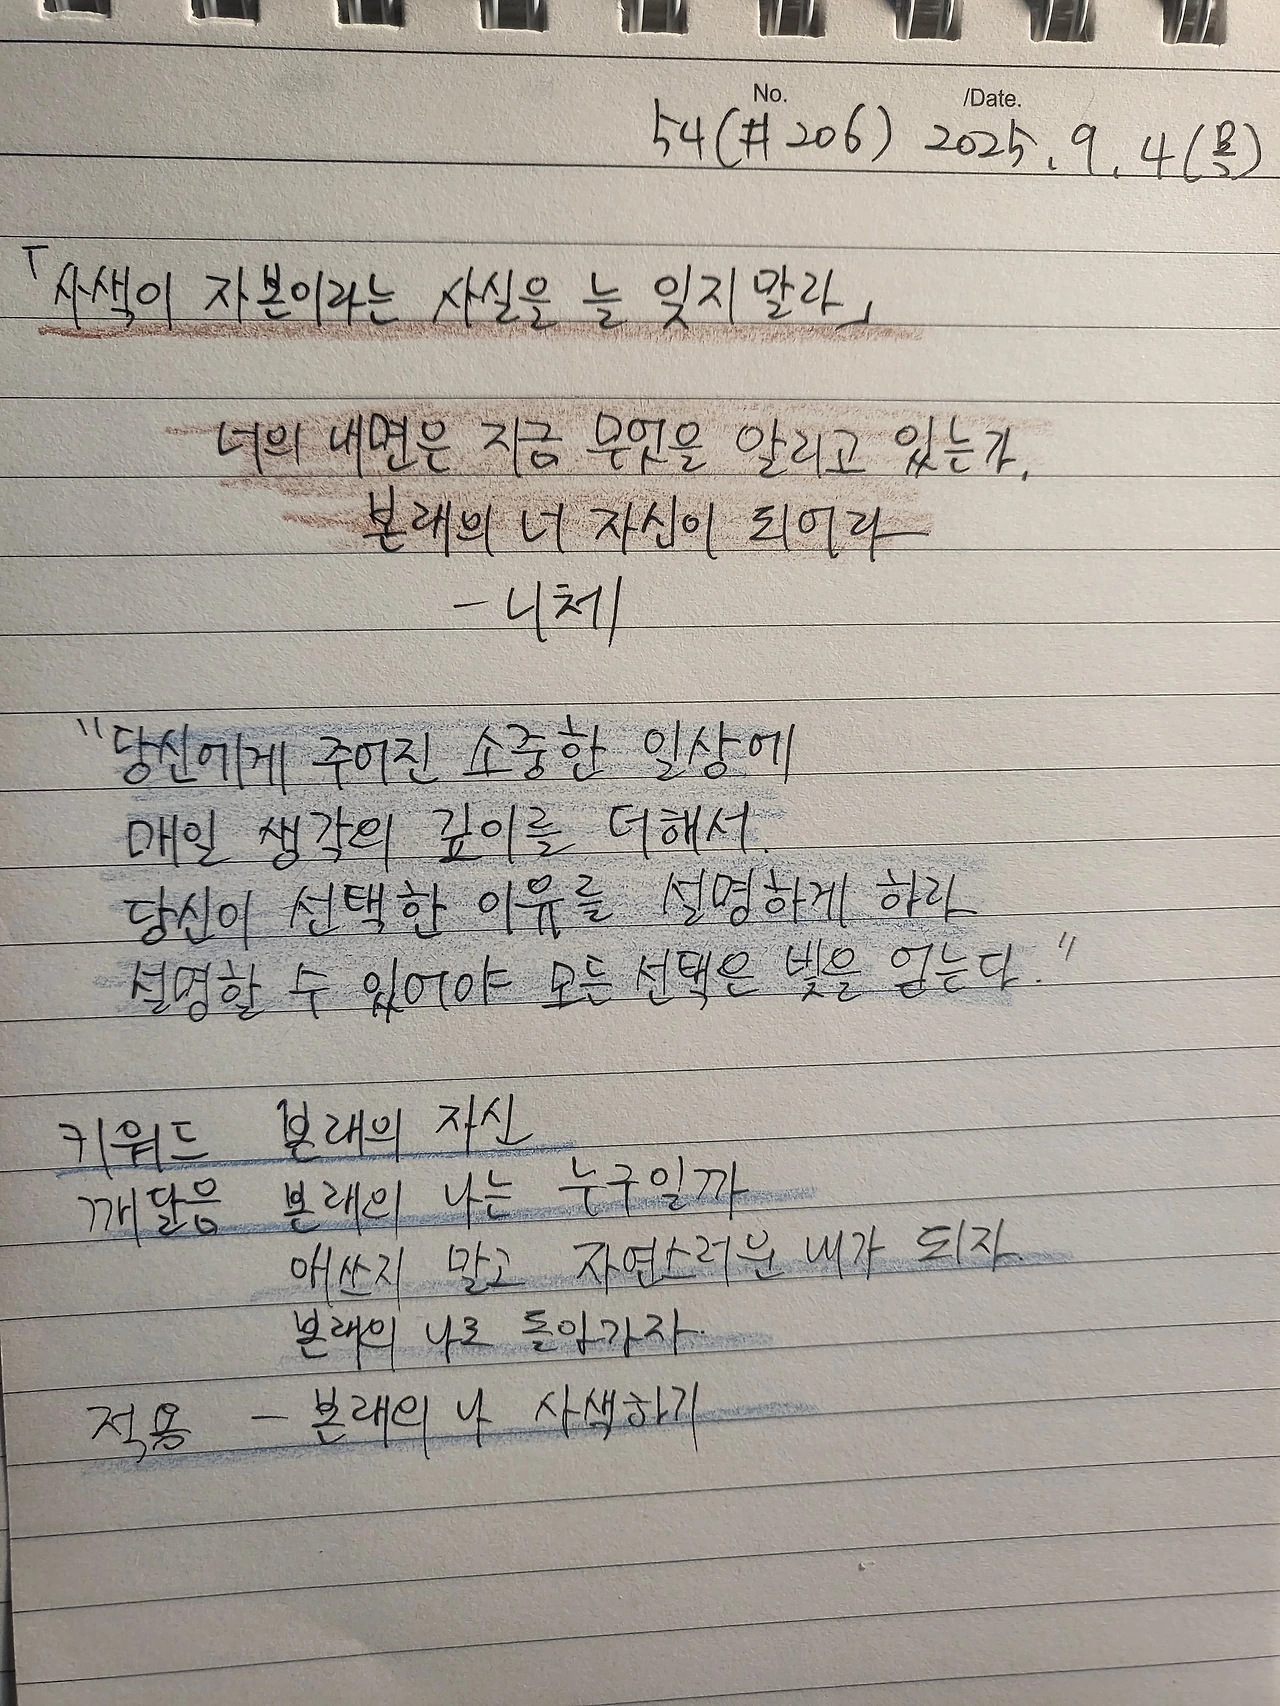 No. /Date.
54(#206) 2025. 9. 4(목)
「사색이 자본이라는 사실을 늘 잊지 말라」
너의 내면은 지금 무엇을 알리고 있는가,
본래의 너 자신이 되어라
- 니체
"당신에게 주어진 소중한 일상에
매일 생각의 깊이를 더해서
당신이 선택한 이유를 설명하게 하라
설명할 수 있어야 모든 선택은 빛을 얻는다."
키워드 본래의 자신
깨달음 본래의 나는 누구일까
애쓰지 말고 자연스러운 내가 되자
본래의 나로 돌아가자.
적용 - 본래의 나 사색하기